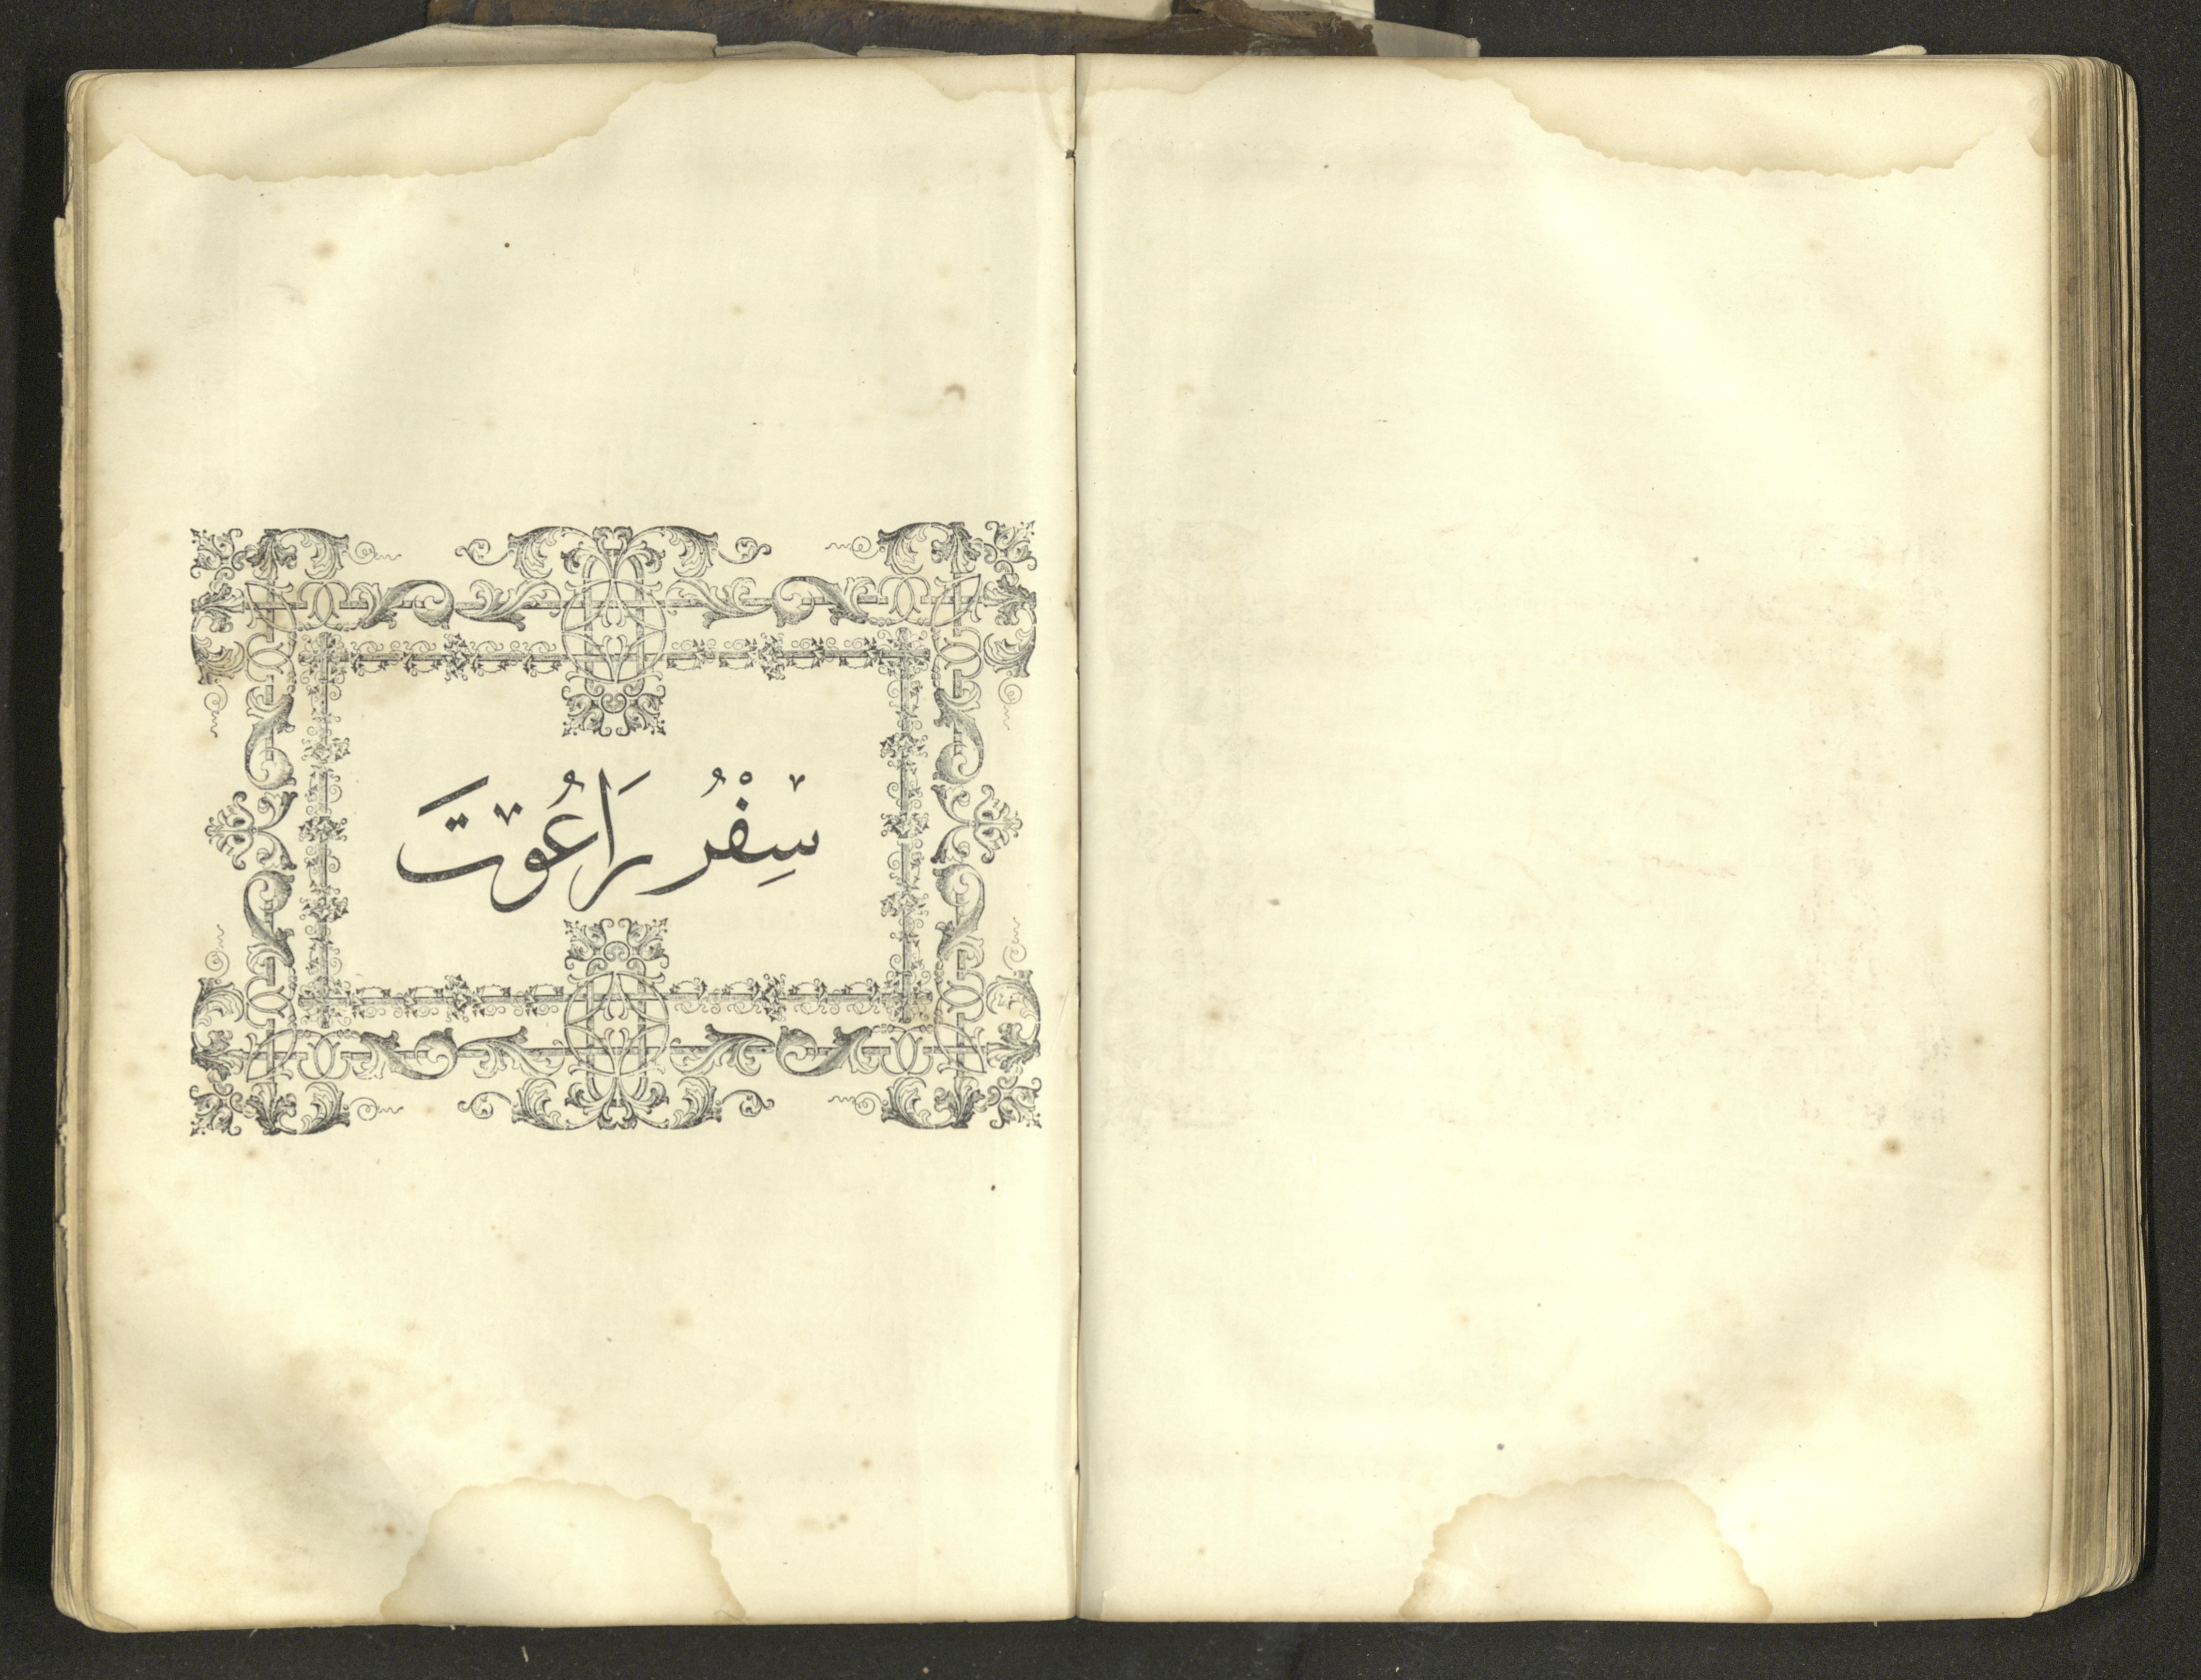 سِفْرُ رَاعُوتَ